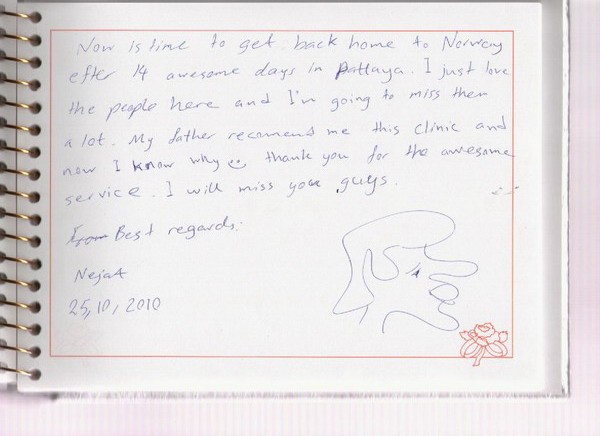 Now is time to get back home to Norway
efter 14 awesome days in Pattaya. I just love
the people here and I'm going to miss them
a lot. My father recomend me this clinic and
now I know why thank you for the awesome
service. I will miss you guys.
From Best regards.
Nejat
25,10,2010